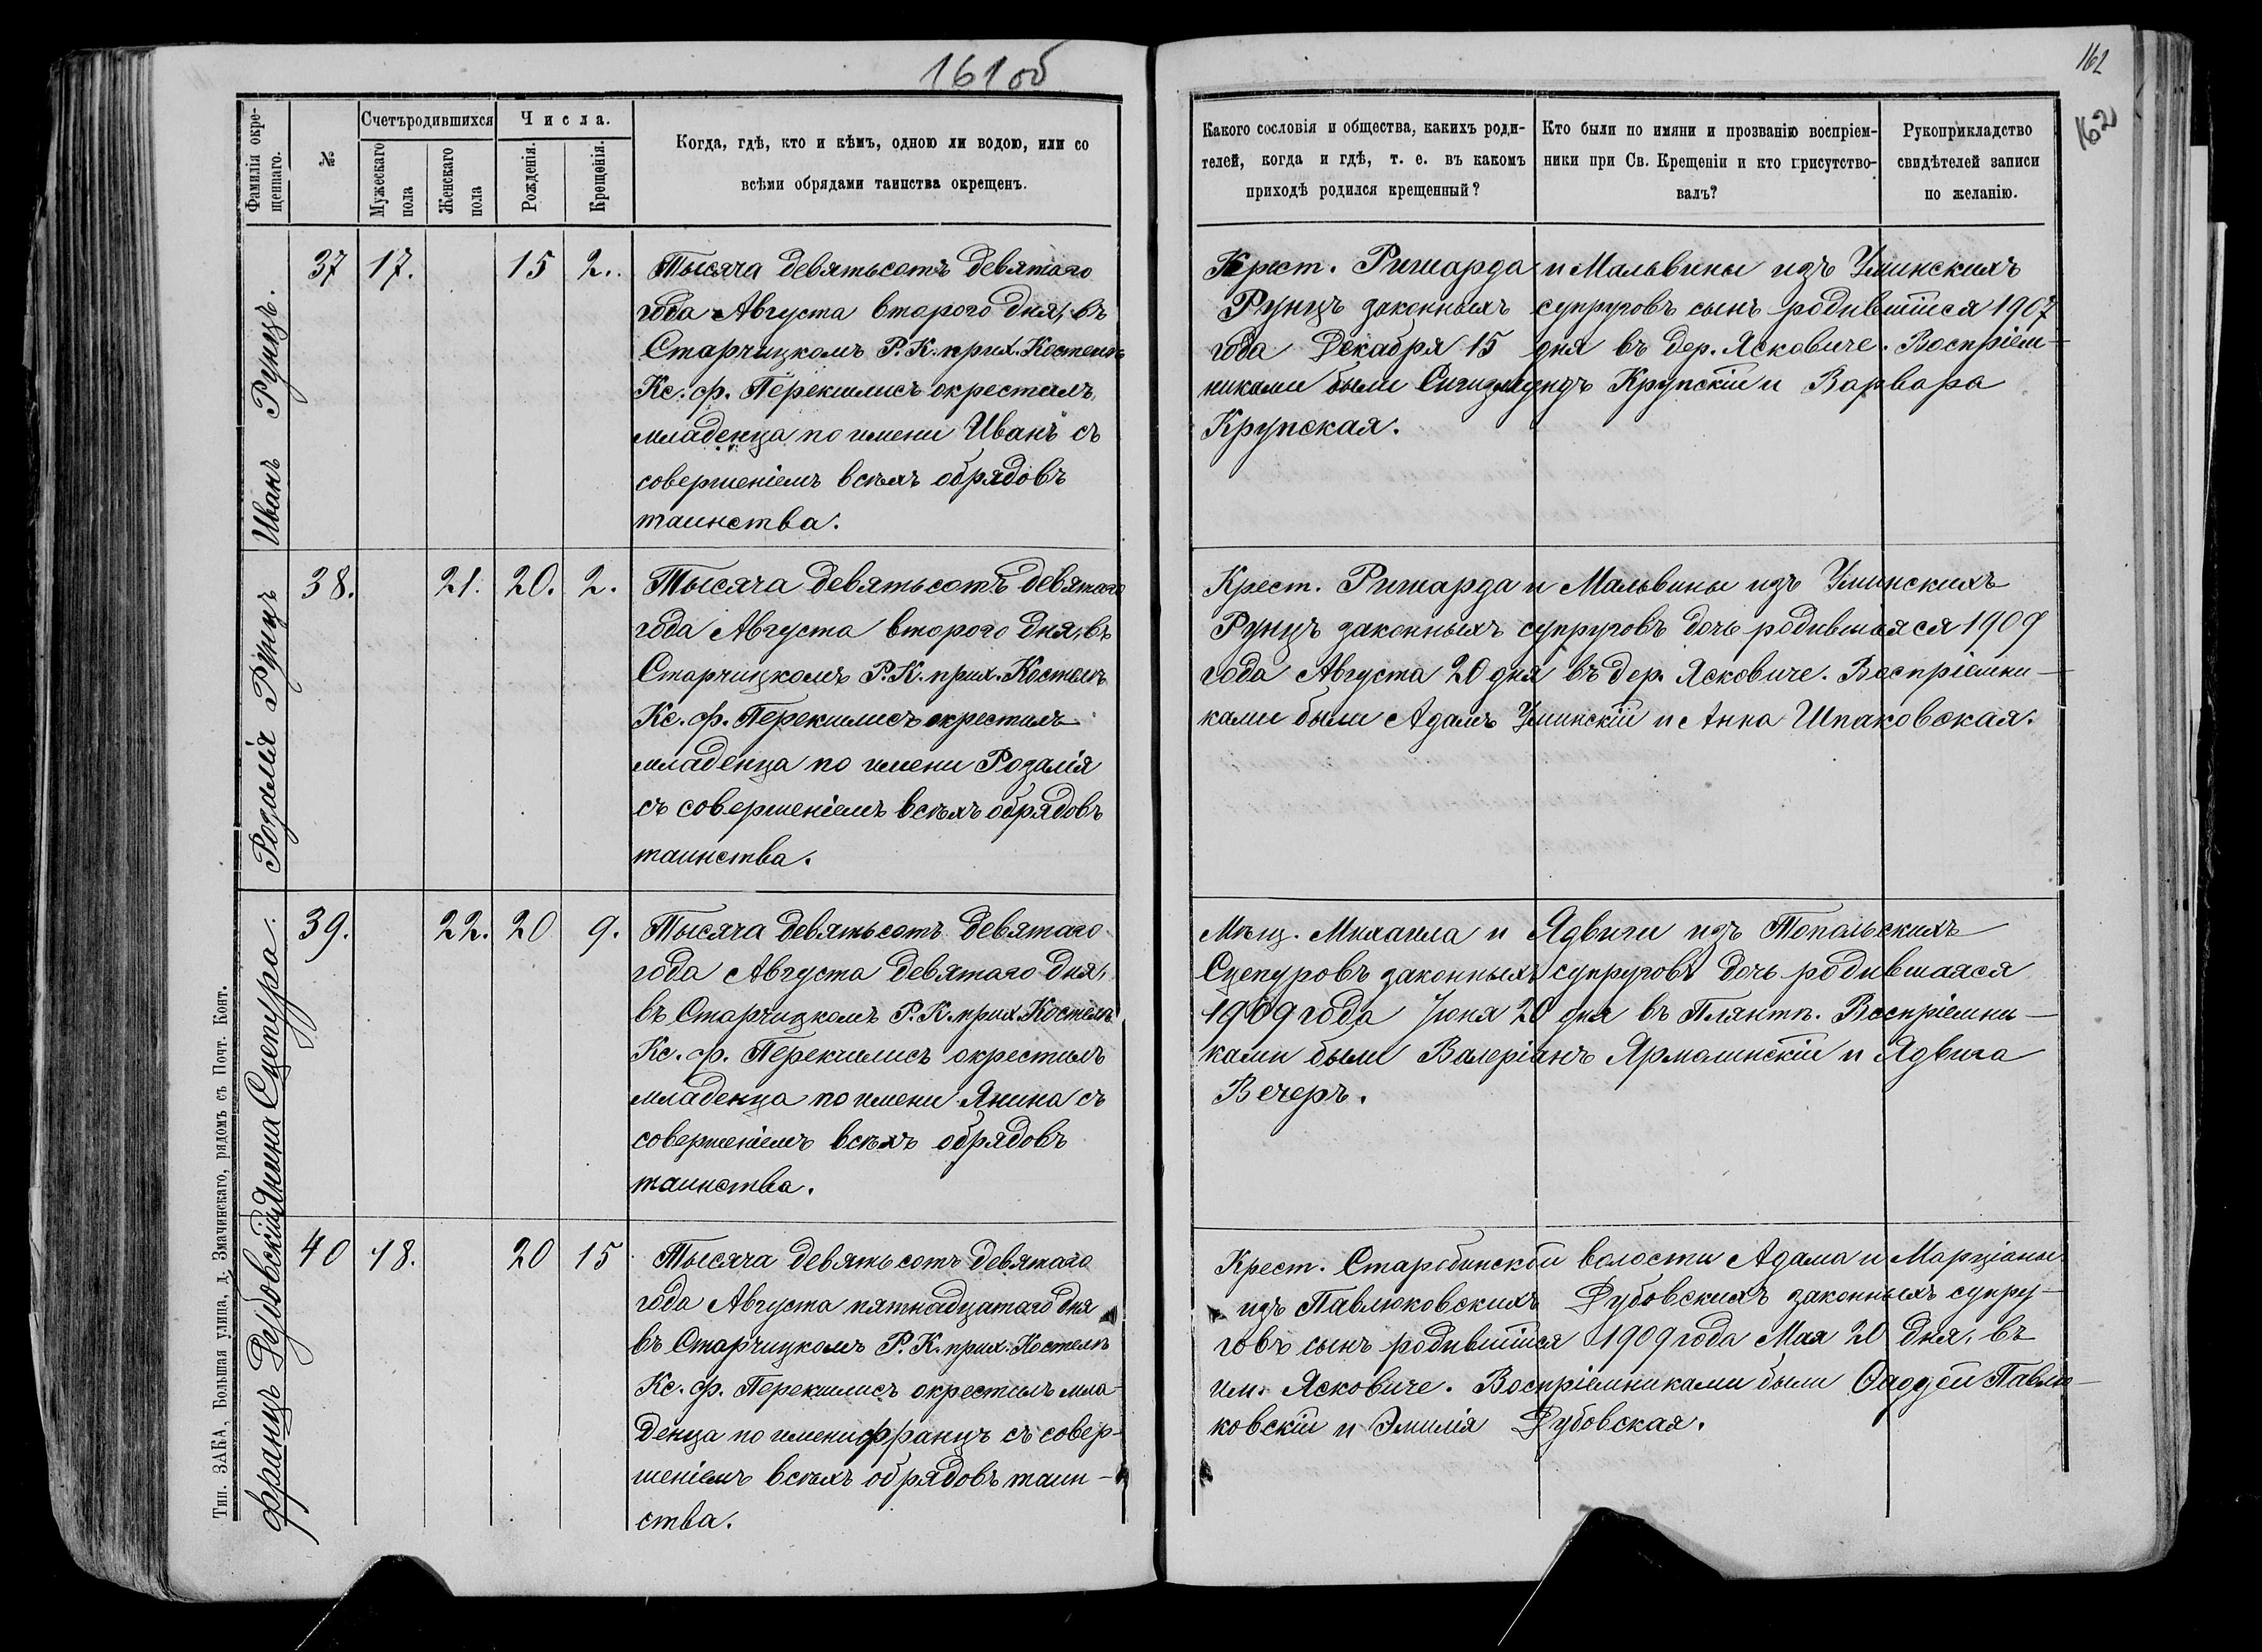 161 об
Фамилія окре-
щеннаго.
№
Счетъ родившихся
Мужескаго
пола
Женскаго
пола
Числа.
Рожденія.
Крещенія.
Когда, гдѣ, кто и кѣмъ, одною ли водою, или со
всѣми обрядами таинства окрещенъ.
Иванъ Рунцъ.
37 17. 15 2.
Тысяча девятьсотъ девятаго
года Августа второго дня, въ
Старчицкомъ Р. К. прих. Костелѣ
Кс. ф. Перекшлисъ окрестилъ
младенца по имени Иванъ съ
совершеніемъ всѣхъ обрядовъ
таинства.
Розалія Рунцъ
38. 21. 20. 2.
Тысяча девятьсотъ девятаго
года Августа второго дня, въ
Старчицкомъ Р. К. прих. Костелѣ
Кс. ф. Перекшлисъ окрестилъ
младенца по имени Розалія
съ совершеніемъ всѣхъ обрядовъ
таинства.
Янина Сцепура.
39. 22. 20 9.
Тысяча девятьсотъ девятаго
года Августа девятаго дня,
въ Старчицкомъ Р. К. прих. Костелѣ
Кс. ф. Перекшлисъ окрестилъ
младенца по имени Янина съ
совершеніемъ всѣхъ обрядовъ
таинства.
Францъ Дубовскій
40 18. 20 15
Тысяча девятьсотъ девятаго
года Августа пятнадцатаго дня
въ Старчицкомъ Р. К. прих. Костелѣ
Кс. ф. Перекшлисъ окрестилъ мла-
денца по имени Францъ съ совер-
шеніемъ всѣхъ обрядовъ таин-
ства.
Тип. ЗАКА, Большая улица, д. Змачинскаго, рядомъ съ Почт. Конт.
162
162
Какого сословія и общества, какихъ роди-
телей, когда и гдѣ, т. е. въ какомъ
приходѣ родился крещенный?
Кто были по имяни и прозванію воспріем-
ники при Св. Крещеніи и кто присутство-
валъ?
Рукоприкладство
свидѣтелей записи
по желанію.
Крест. Ришарда и Мальвины изъ Уминскихъ
Рунцъ законныхъ супруговъ сынъ родившійся 1907
года Декабря 15 дня въ дер. Ясковиче. Воспріем-
никами были Сигизмундъ Крупскій и Варвара
Крупская.
Крест. Ришарда и Мальвины изъ Уминскихъ
Рунцъ законныхъ супруговъ дочь родившаяся 1909
года Августа 20 дня въ дер. Ясковиче. Воспріемни-
ками были Адамъ Уминскій и Анна Шпаковская.
Мѣщ. Михаила и Ядвиги изъ Топольскихъ
Сцепуровъ законныхъ супруговъ дочь родившаяся
1909 года Іюня 20 дня въ Плянтѣ. Воспріемни-
ками были Валеріанъ Ярмолинскій и Ядвига
Вечеръ.
Крест. Старобинской волости Адама и Марціаны
изъ Павлюковскихъ Дубовскихъ законныхъ супру-
говъ сынъ родившійся 1909 года Мая 20 дня, въ
им. Ясковиче. Воспріемниками были Ѳаддей Павлю-
ковскій и Эмилія Дубовская.